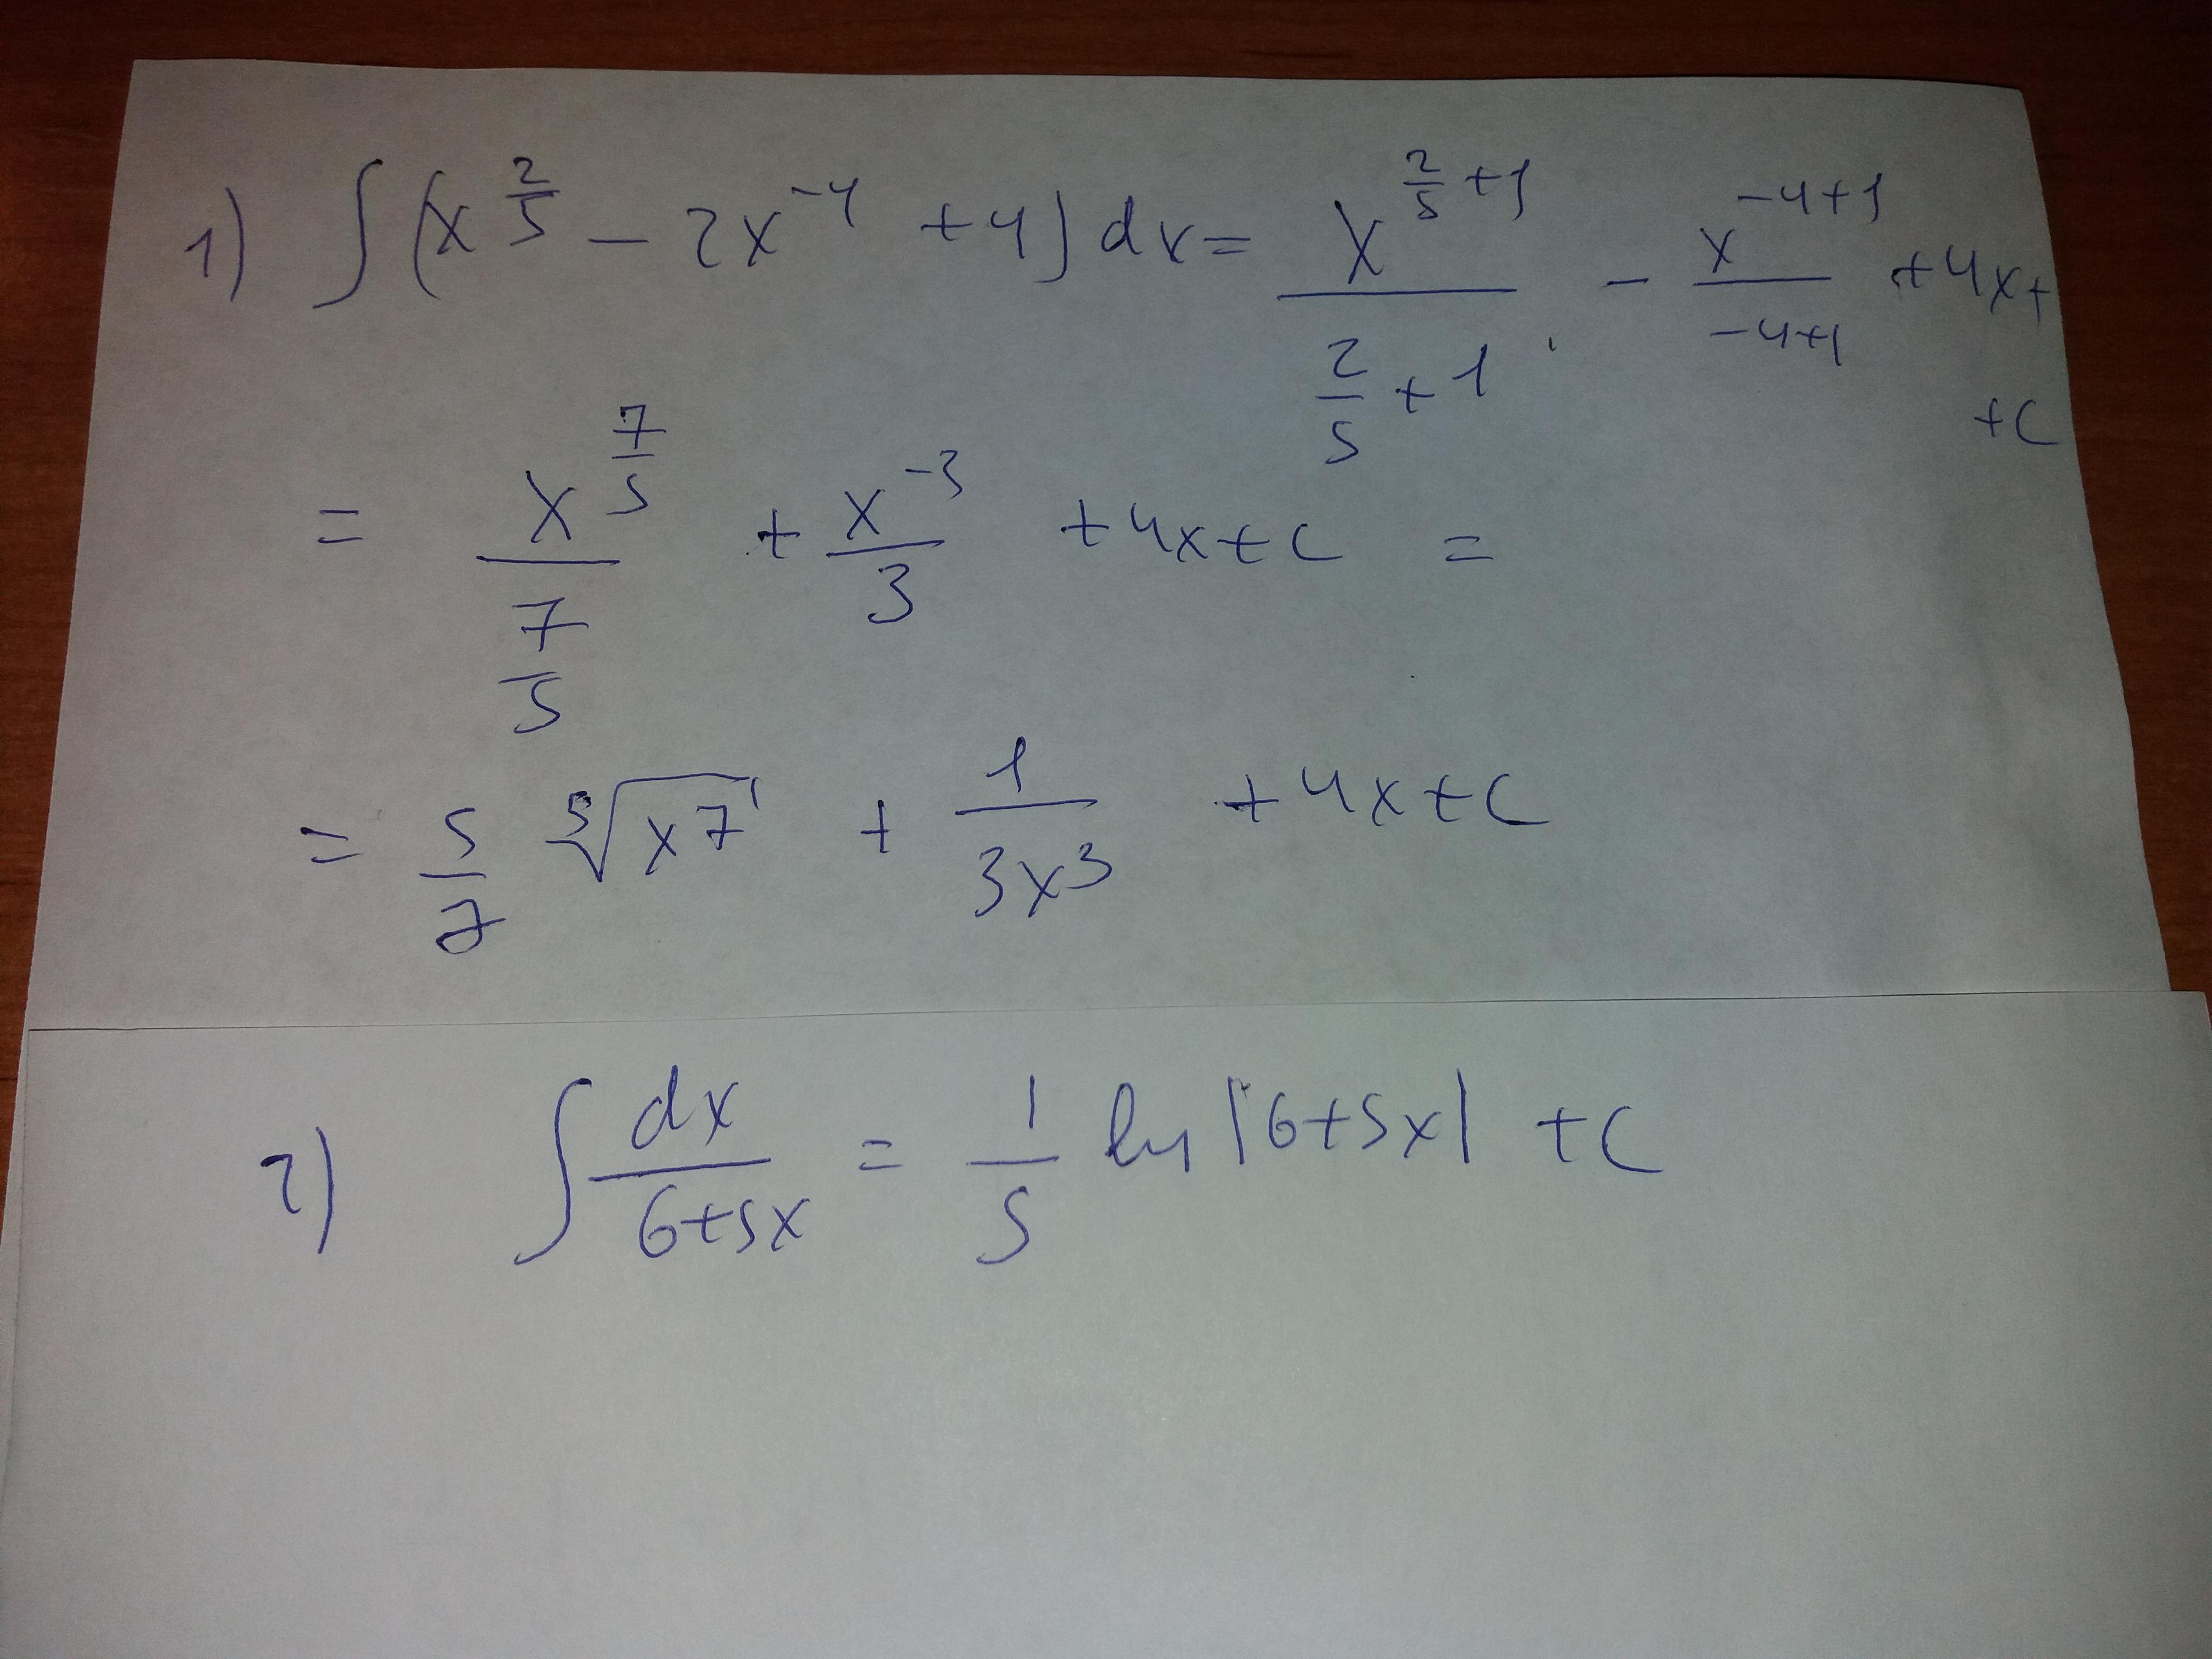 1) ∫(x^(2/5) − 2x^(-4) + 4)dx = x^(2/5+1)/(2/5+1) − x^(-4+1)/(-4+1) + 4x +
+ C
= x^(7/5)/(7/5) + x^(-3)/3 + 4x + C =
= 5/7 ⁵√(x^7) + 1/(3x^3) + 4x + C
2) ∫dx/(6+5x) = 1/5 ln|6+5x| + C